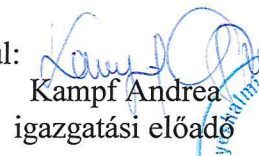 ül:
Kampf Andrea
igazgatási előadó